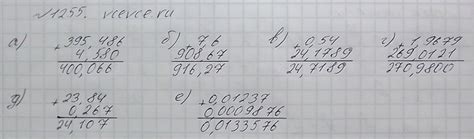 №1255. vcevce.ru
а) +395,486
4,580
400,066
б) +7,6
908,67
916,27
в) +0,54
24,1789
24,7189
г) +1,9679
269,0121
270,9800
д) +23,84
0,267
24,107
е) +0,01237
0,0009876
0,0133576